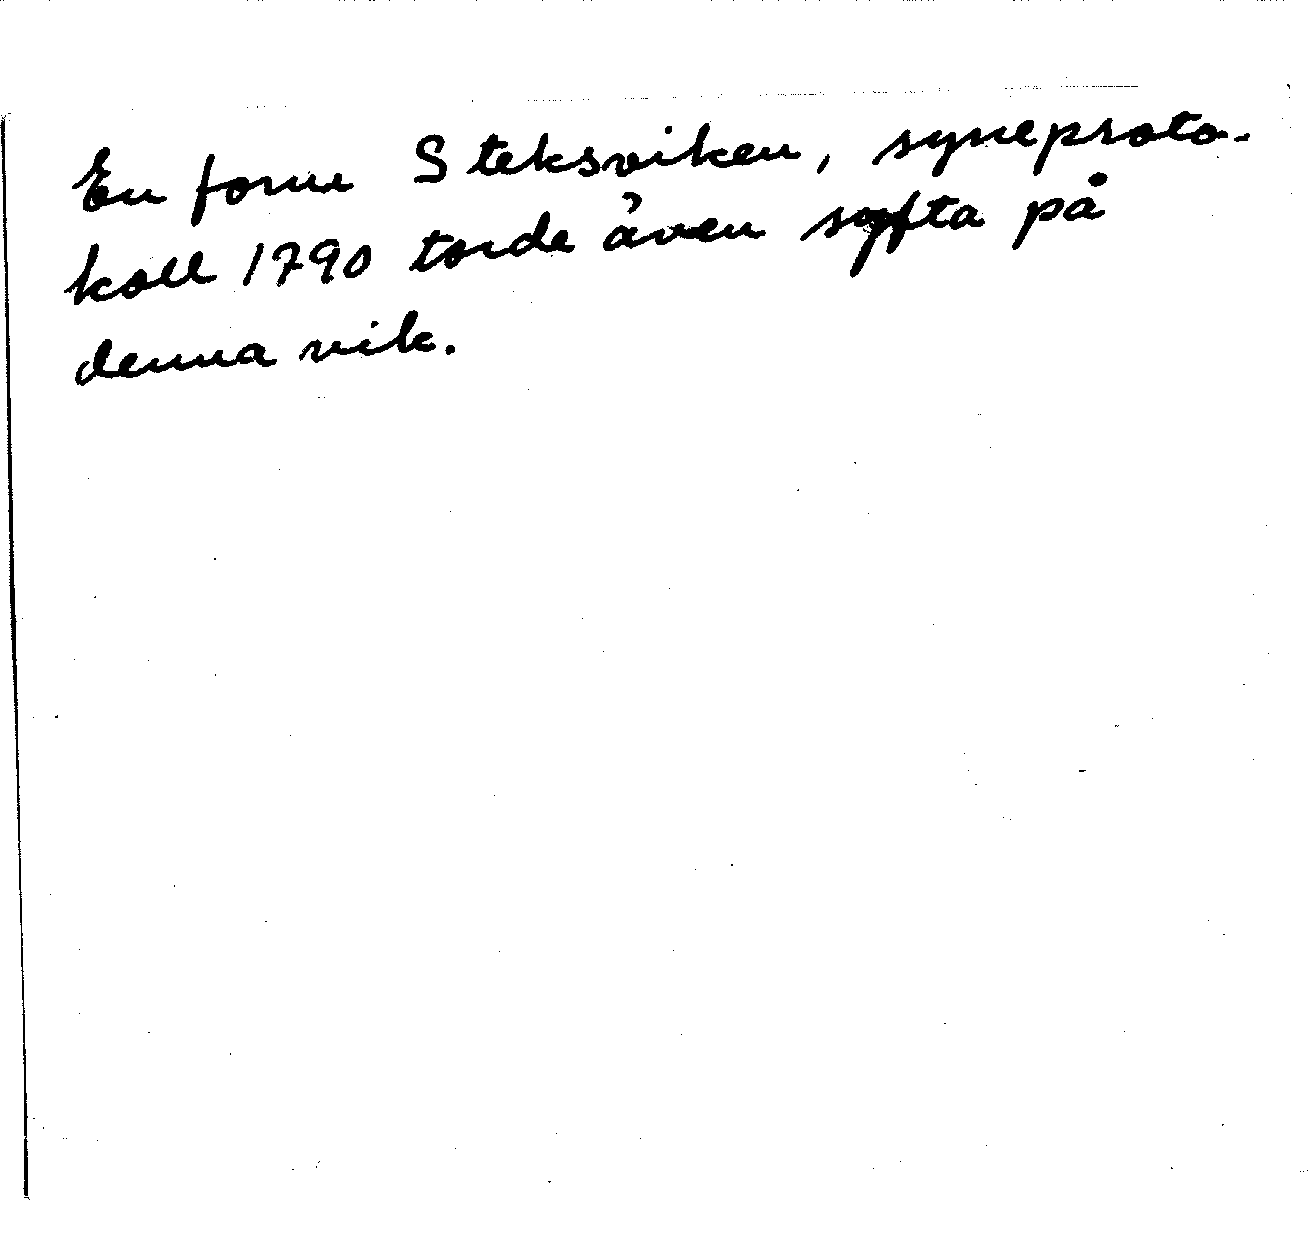 En form Steksviken, syneproto-
koll 1790 torde även syfta på
denna vik.